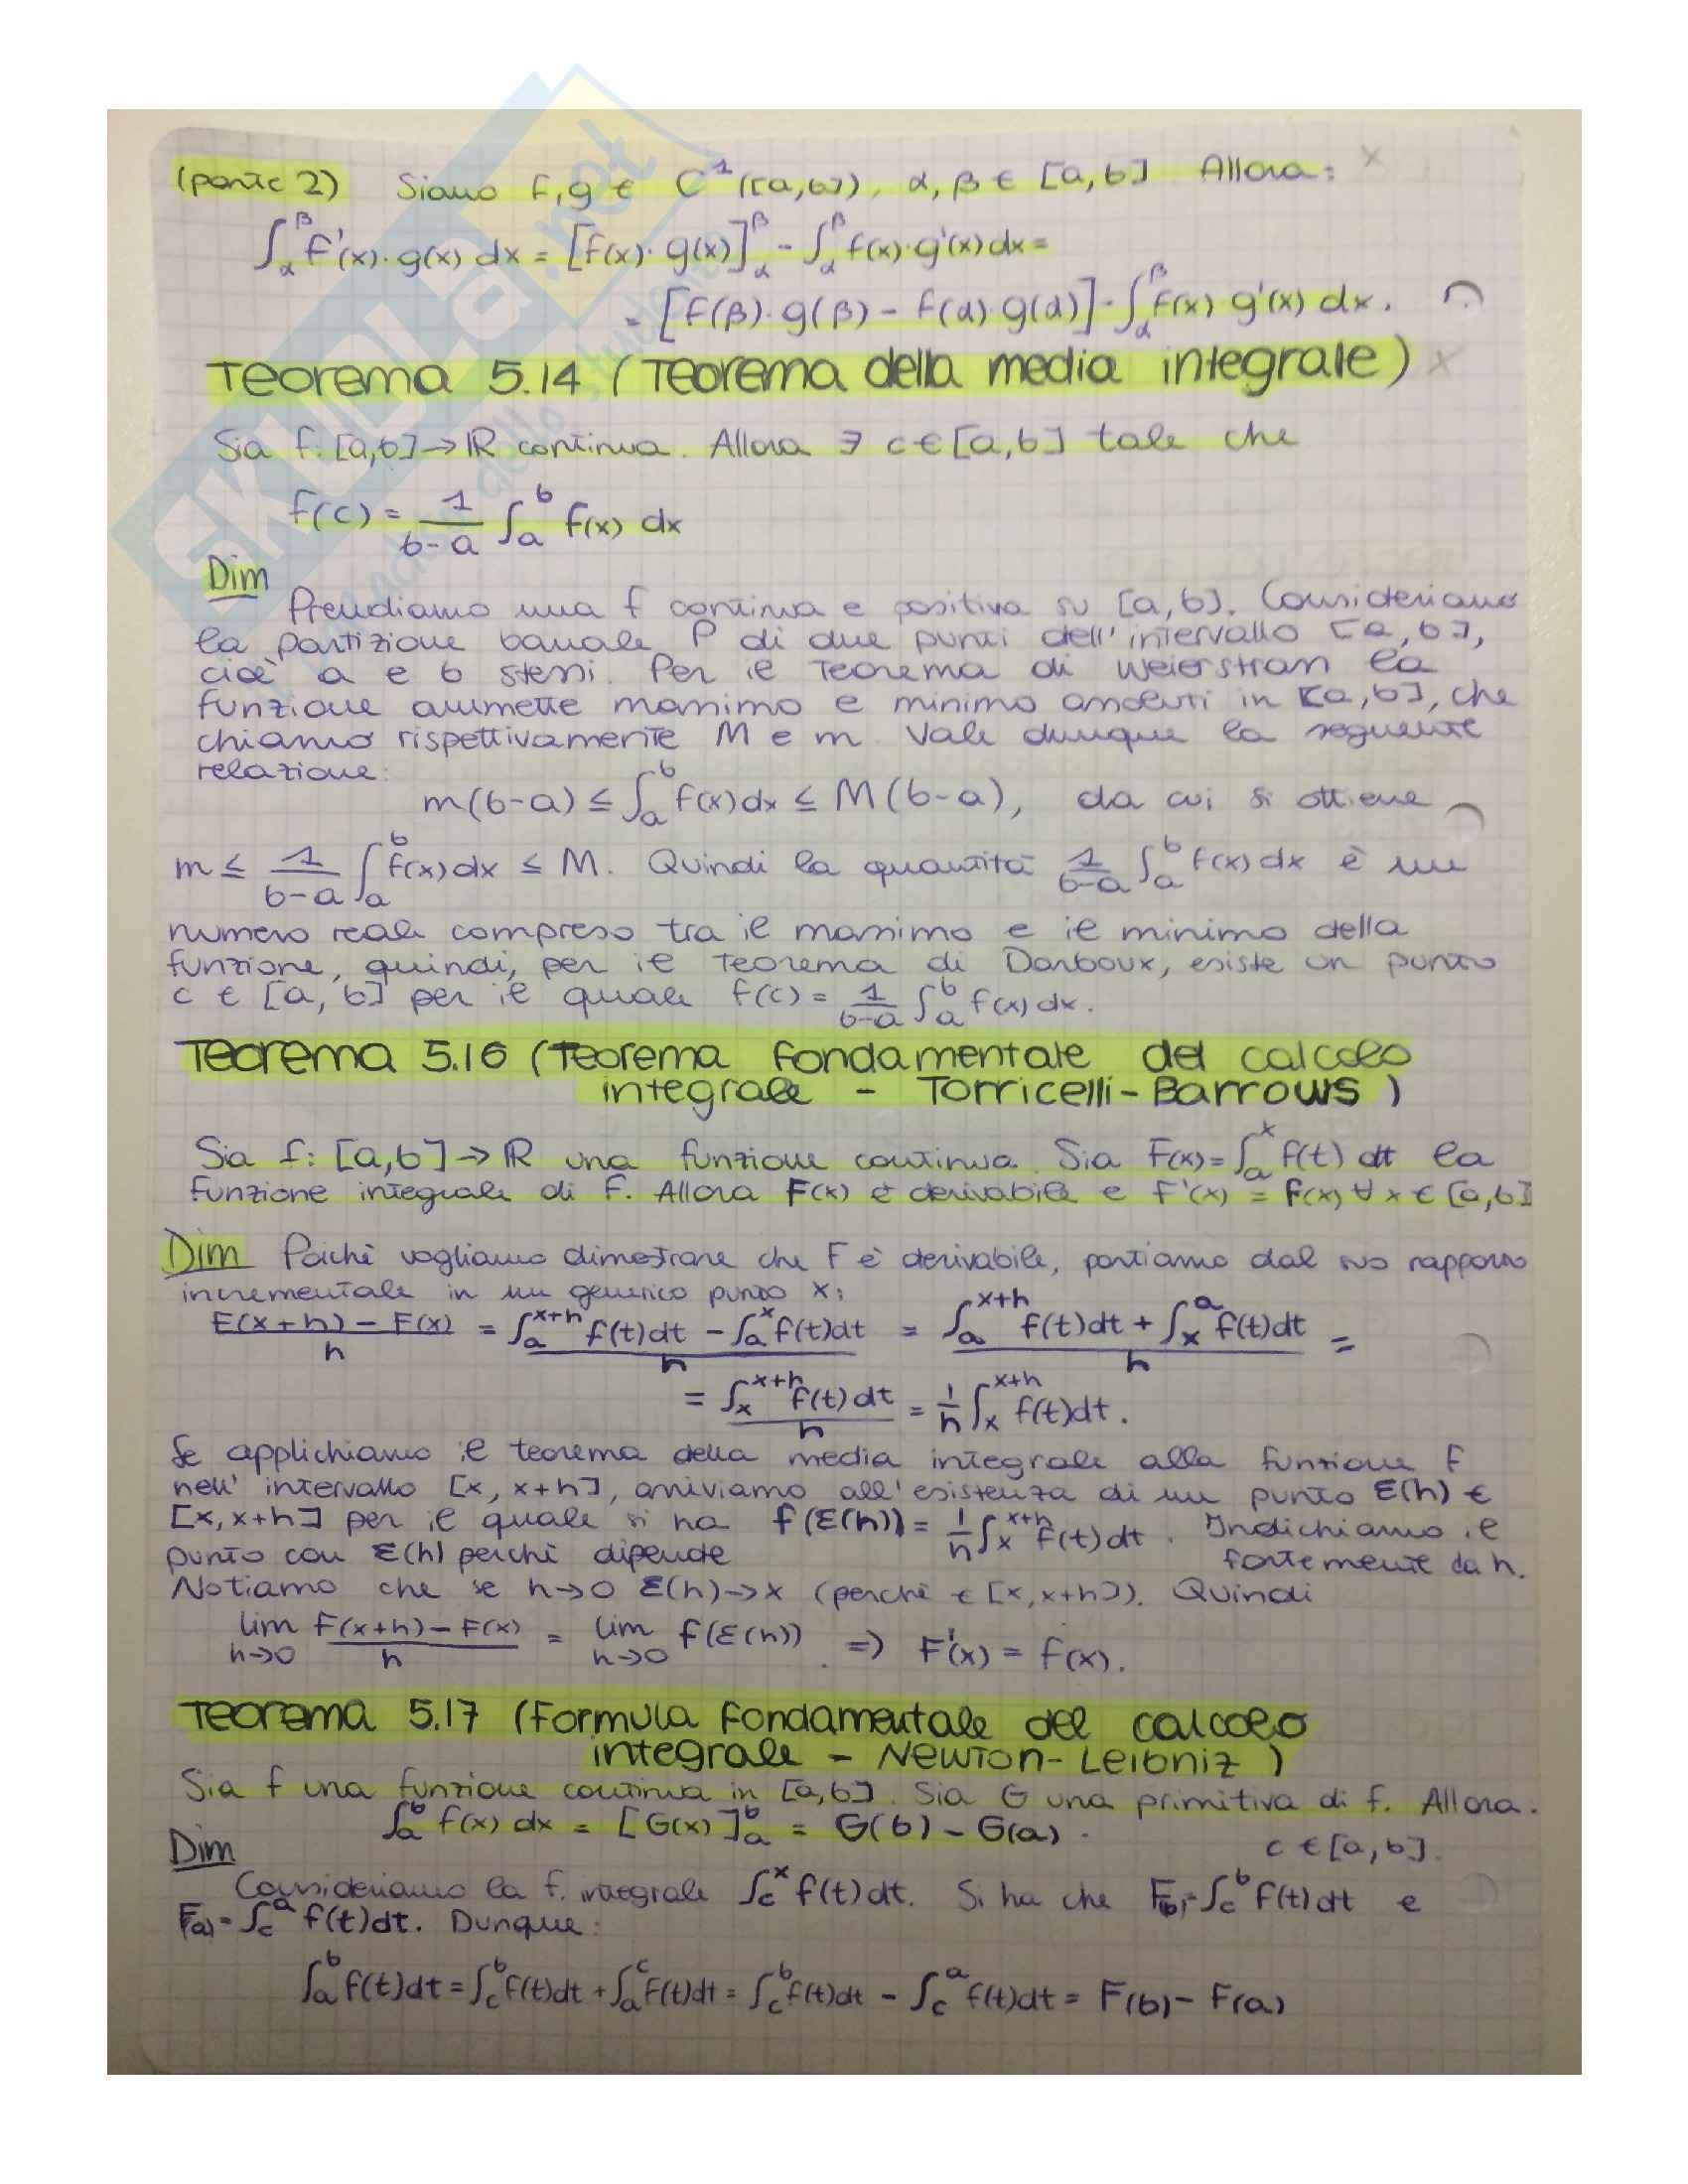 (parte 2) Siano f,g ∈ C¹([a,b]), α, β ∈ [a,b] Allora:
∫_α^β f'(x)·g(x) dx = [f(x)·g(x)]_α^β - ∫_α^β f(x)·g'(x)dx =
= [f(β)·g(β) - f(α)·g(α)] - ∫_α^β f(x) g'(x) dx.
Teorema 5.14 (Teorema della media integrale)
Sia f: [a,b] → ℝ continua. Allora ∃ c ∈ [a,b] tale che
f(c) = 1/(b-a) ∫_a^b f(x) dx
Dim
Prendiamo una f continua e positiva su [a,b]. Consideriamo
la partizione banale P di due punti dell'intervallo [a,b],
cioè a e b stessi. Per il Teorema di Weierstrass la
funzione ammette massimo e minimo assoluti in [a,b], che
chiamo rispettivamente M e m. Vale dunque la seguente
relazione:
m(b-a) ≤ ∫_a^b f(x)dx ≤ M(b-a), da cui si ottiene
m ≤ 1/(b-a) ∫_a^b f(x)dx ≤ M. Quindi la quantità 1/(b-a) ∫_a^b f(x)dx è un
numero reale compreso tra il massimo e il minimo della
funzione, quindi, per il Teorema di Darboux, esiste un punto
c ∈ [a,b] per il quale f(c) = 1/(b-a) ∫_a^b f(x)dx.
Teorema 5.16 (Teorema fondamentale del calcolo
integrale - Torricelli-Barrows)
Sia f: [a,b] → ℝ una funzione continua. Sia F(x) = ∫_a^x f(t) dt la
funzione integrale di f. Allora F(x) è derivabile e F'(x) = f(x) ∀ x ∈ [a,b]
Dim Poichè vogliamo dimostrare che F è derivabile, partiamo dal suo rapporto
incrementale in un generico punto x:
(F(x+h) - F(x))/h = (∫_a^{x+h} f(t)dt - ∫_a^x f(t)dt)/h = (∫_a^{x+h} f(t)dt + ∫_x^a f(t)dt)/h =
= (∫_x^{x+h} f(t)dt)/h = 1/h ∫_x^{x+h} f(t)dt.
Se applichiamo il teorema della media integrale alla funzione f
nell'intervallo [x, x+h], arriviamo all'esistenza di un punto Ɛ(h) ∈
[x, x+h] per il quale si ha f(Ɛ(h)) = 1/h ∫_x^{x+h} f(t)dt. Indichiamo il
punto con Ɛ(h) perchè dipende fortemente da h.
Notiamo che se h→0 Ɛ(h)→x (perchè ∈ [x, x+h]). Quindi
lim_{h→0} (F(x+h) - F(x))/h = lim_{h→0} f(Ɛ(h)) ⇒ F'(x) = f(x).
Teorema 5.17 (Formula fondamentale del calcolo
integrale - Newton-Leibniz)
Sia f una funzione continua in [a,b]. Sia G una primitiva di f. Allora:
∫_a^b f(x) dx = [G(x)]_a^b = G(b) - G(a).
Dim c ∈ [a,b].
Consideriamo la f. integrale ∫_c^x f(t)dt. Si ha che F(b) = ∫_c^b f(t)dt e
F(a) = ∫_c^a f(t)dt. Dunque:
∫_a^b f(t)dt = ∫_c^b f(t)dt + ∫_a^c f(t)dt = ∫_c^b f(t)dt - ∫_c^a f(t)dt = F(b) - F(a)